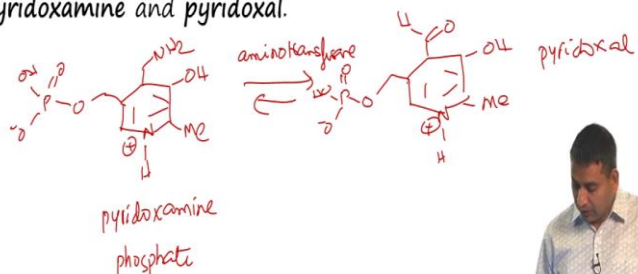 yridoxamine and pyridoxal.
NH2
OH
OH
O
P
O
-O
Me
N
⊕
H
aminotransferase
H
O
OH
O
HO
P
O
-O
Me
N
⊕
H
pyridoxal
pyridoxamine
phosphate